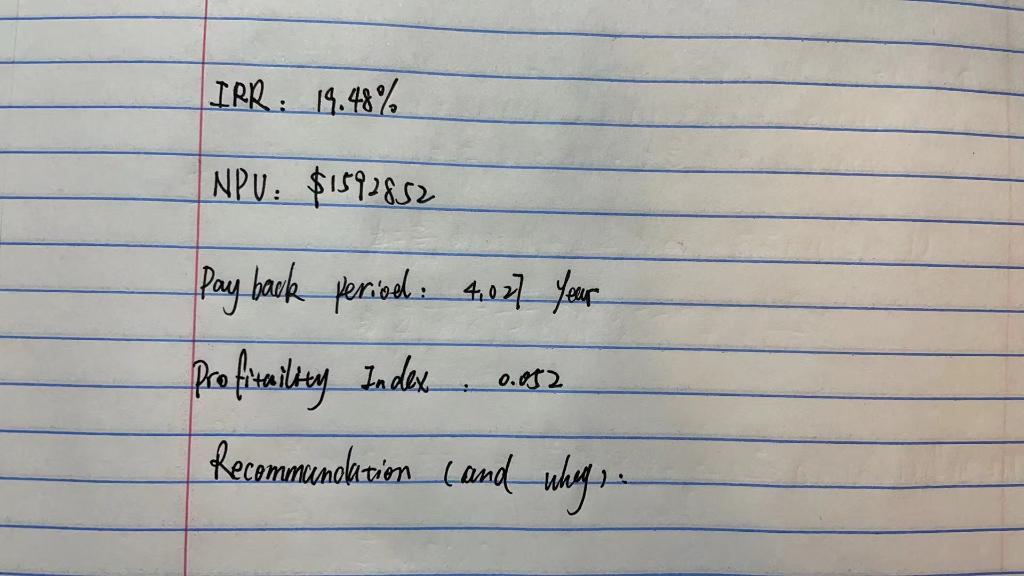 IRR: 19.48%
NPV: $1592852
Pay back period: 4.027 Year
Profitaility Index: 0.052
Recommandation (and whey):